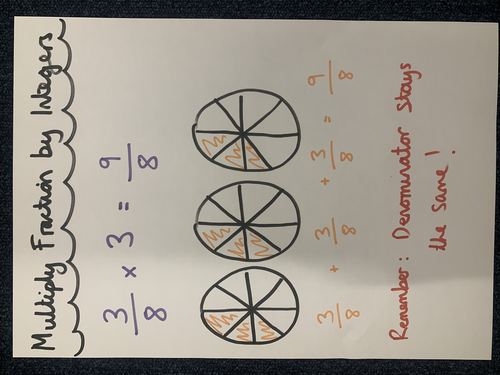 Multiply Fraction by Integers
3/8 × 3 = 9/8
3/8 + 3/8 + 3/8 = 9/8
Remember: Denominator stays
the same!